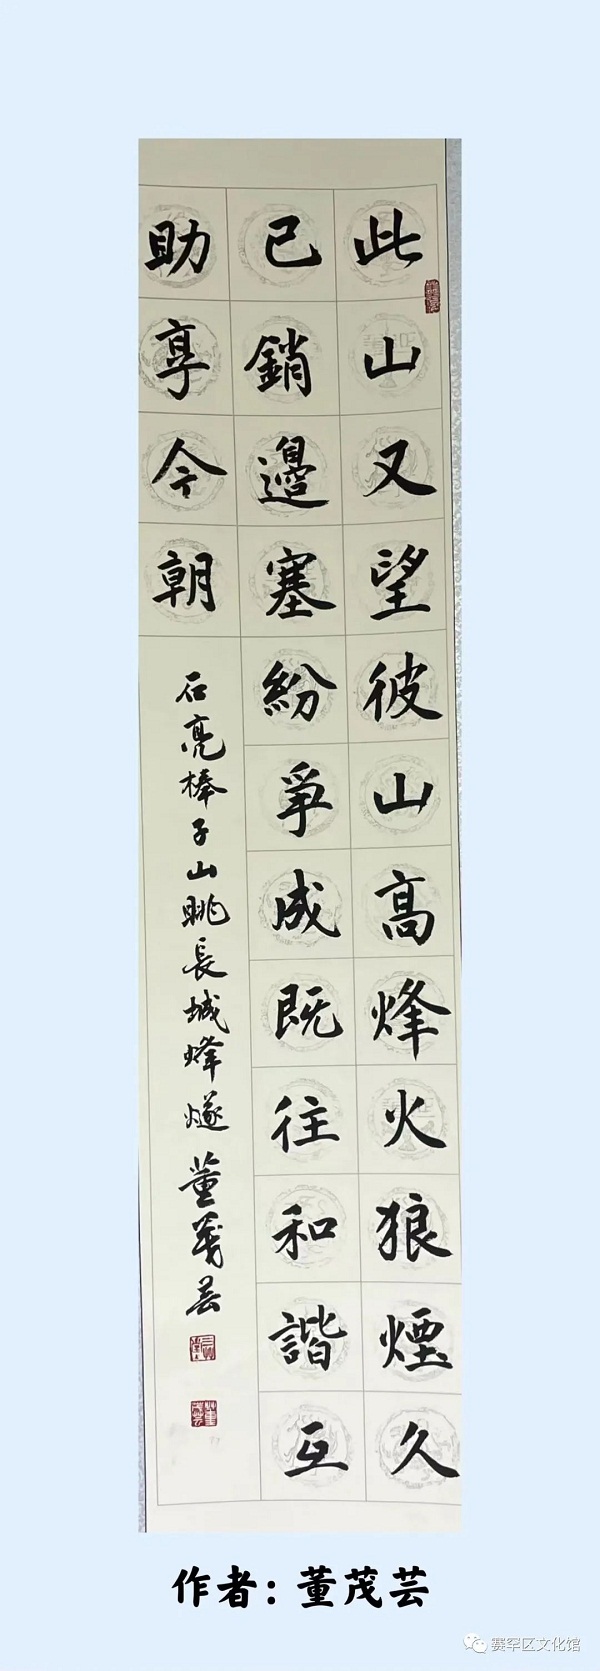 此山又望彼山高烽火狼煙久
已銷邊塞紛爭成既往和諧互
助享今朝
石亮棒子山眺長城烽燧 董茂芸
作者：董茂芸
赛罕区文化馆